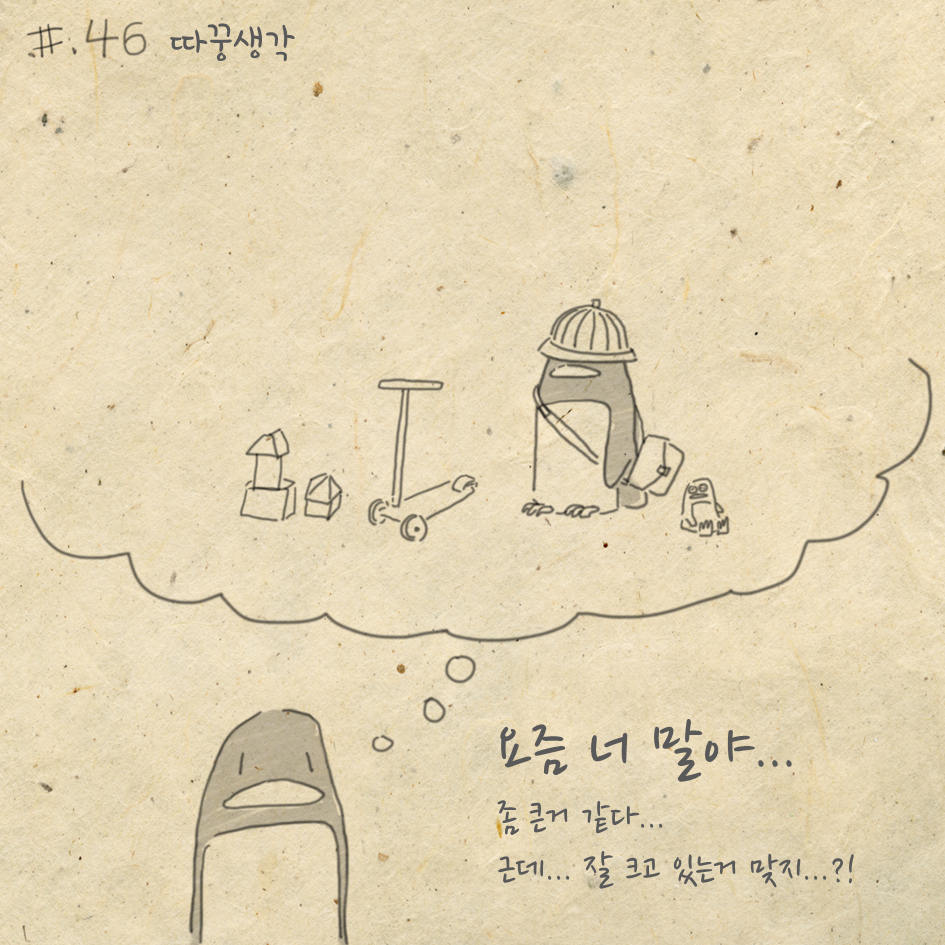 #.46 따꿍생각
요즘 너 말야...
좀 큰거 같다...
근데... 잘 크고 있는거 맞지...?!